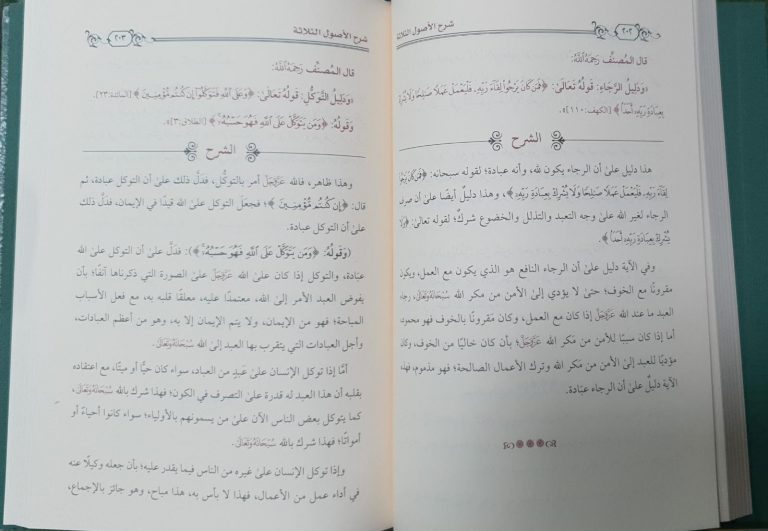 ٢٠٢
شرح الأصول الثلاثة
قال المُصنِّف رَحِمَهُ اللَّهُ:
«وَدَلِيلُ الرَّجَاءِ: قَولُهُ تَعَالَىٰ: ﴿فَمَن كَانَ يَرْجُوا لِقَاءَ رَبِّهِ فَلْيَعْمَلْ عَمَلًا صَالِحًا وَلَا يُشْرِكْ
بِعِبَادَةِ رَبِّهِ أَحَدًا﴾ [الكهف: ١١٠]».
الشرح
هذا دليل علىٰ أن الرجاء يكون لله، وأنه عبادة؛ لقوله سبحانه: ﴿فَمَن كَانَ يَرْجُوا
لِقَاءَ رَبِّهِ فَلْيَعْمَلْ عَمَلًا صَالِحًا وَلَا يُشْرِكْ بِعِبَادَةِ رَبِّهِ﴾، وهذا دليلٌ أيضًا علىٰ أن صرف
الرجاء لغير الله علىٰ وجه التعبد والتذلل والخضوع شركٌ؛ لقوله تعالىٰ: ﴿وَلَا
يُشْرِكْ بِعِبَادَةِ رَبِّهِ أَحَدًا﴾.
وفي الآية دليل علىٰ أن الرجاء النافع هو الذي يكون مع العمل، ويكون
مقرونًا مع الخوف؛ حتىٰ لا يؤدي إلىٰ الأمن من مكر الله سُبْحَانَهُ وَتَعَالَىٰ، رجاء
العبد ما عند الله عَزَّوَجَلَّ إذا كان مع العمل، وكان مَقرونًا بالخوف فهو محمود،
أما إذا كان سببًا للأمن من مكر الله عَزَّوَجَلَّ؛ بأن كان خاليًا من الخوف، وكان
مؤديًا للعبد إلىٰ الأمن من مكر الله وترك الأعمال الصالحة؛ فهو مذموم، فهذه
الآية دليلٌ علىٰ أن الرجاء عبَادة.
شرح الأصول الثلاثة
٢٠٣
قال المُصنِّف رَحِمَهُ اللَّهُ:
«وَدَلِيلُ التَّوَكُّلِ: قَولُهُ تَعَالَىٰ: ﴿وَعَلَى اللَّهِ فَتَوَكَّلُوا إِن كُنتُم مُّؤْمِنِينَ﴾ [المائدة: ٢٣].
وَقَولُهُ: ﴿وَمَن يَتَوَكَّلْ عَلَى اللَّهِ فَهُوَ حَسْبُهُ﴾ [الطلاق: ٣]».
الشرح
وهذا ظاهر، فالله عَزَّوَجَلَّ أمر بالتوكُّل، فدلَّ ذلك علىٰ أن التوكل عبادة، ثم
قال: ﴿إِن كُنتُم مُّؤْمِنِينَ﴾؛ فجعلَ التوكل علىٰ الله قيدًا في الإيمان، فدلَّ ذلك
علىٰ أن التوكل عبادة.
(وَقَولُهُ: ﴿وَمَن يَتَوَكَّلْ عَلَى اللَّهِ فَهُوَ حَسْبُهُ﴾): فدلَّ علىٰ أن التوكل علىٰ الله
عبَادة، والتوكل إذا كان علىٰ الله عَزَّوَجَلَّ علىٰ الصورة التي ذكرناها آنفًا؛ بأن
يفوض العبد الأمر إلىٰ الله، معتمدًا عليه، معلقًا قلبه به، مع فعل الأسباب
المباحة؛ فهو من الإيمان، ولا يتم الإيمان إلا به، وهو من أعظم العبادات،
وأجل العبادات التي يتقرب بها العبد إلىٰ الله سُبْحَانَهُ وَتَعَالَىٰ.
أمَّا إذا توكل الإنسان علىٰ عَبدٍ من العباد، سواء كان حيًّا أو ميتًا، مع اعتقاده
بقلبه أن هذا العبد له قدرة علىٰ التصرف في الكون؛ فهذا شرك بالله سُبْحَانَهُ وَتَعَالَىٰ،
كما يتوكل بعض الناس الآن علىٰ من يسمونهم بالأولياء؛ سواء كانوا أحياءً أو
أمواتًا؛ فهذا شرك بالله سُبْحَانَهُ وَتَعَالَىٰ.
وإذا توكل الإنسان علىٰ غيره من الناس فيما يقدر عليه؛ بأن جعله وكيلًا عنه
في أداء عمل من الأعمال، فهذا لا بأس به، هذا مباح، وهو جائز بالإجماع،